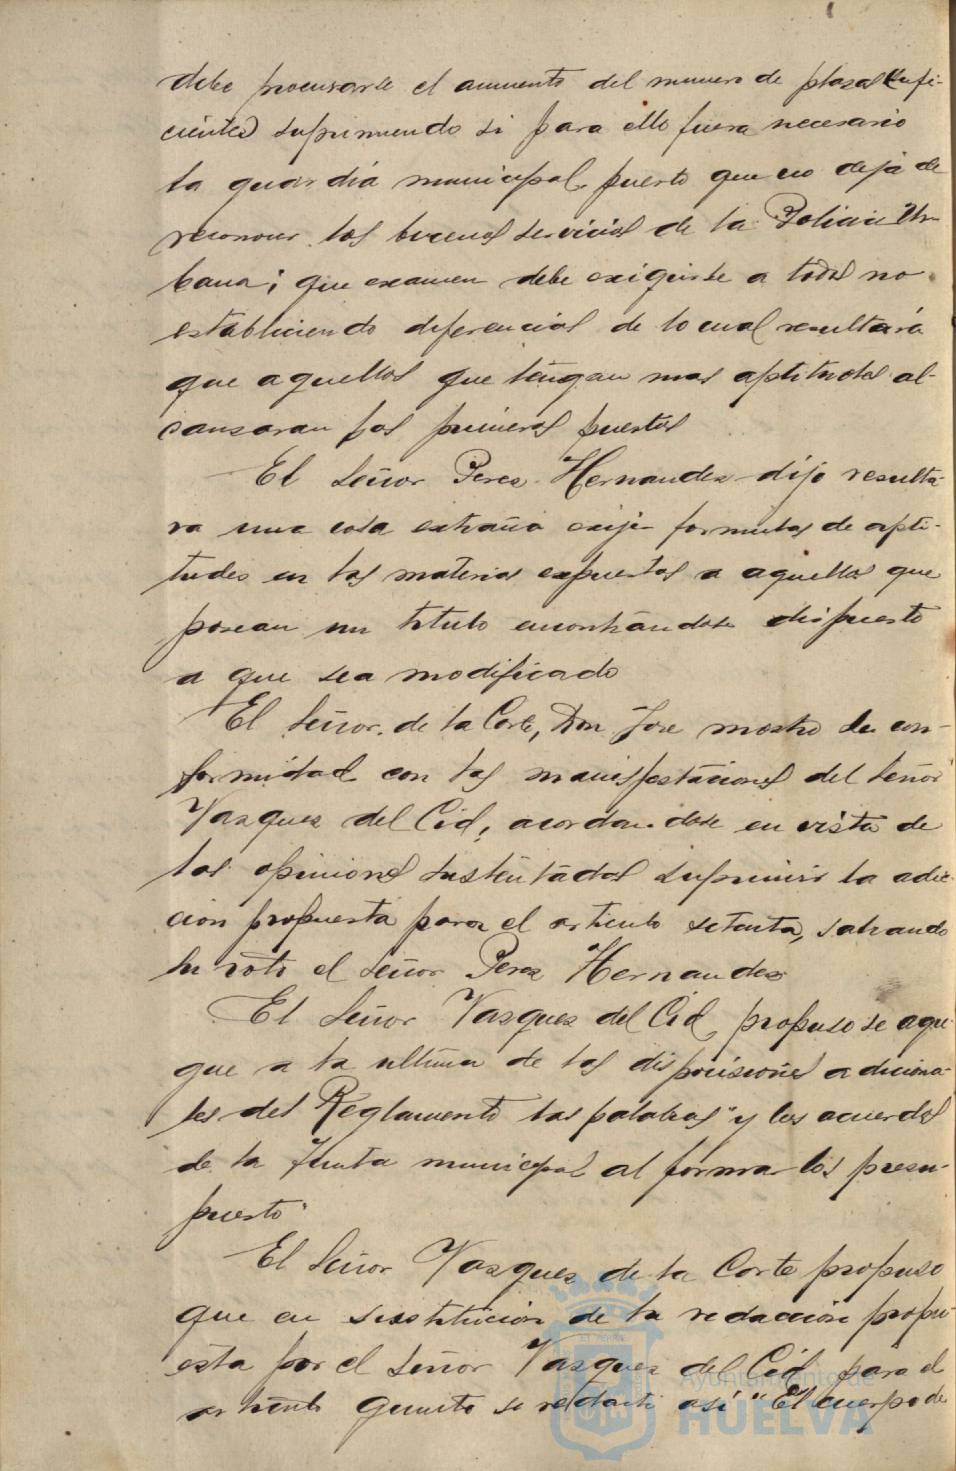 debe procurarse el aumento del numero de plazas sufi-
cientes suprimiendo si para ello fuera necesario
la guardia municipal, puesto que no deja de
reconocer los buenos servicios de la Policia Ur-
bana; que examen debe exigirse a todos no
estableciendo diferencias de lo cual resultará
que aquellos que tengan mas aptitudes al-
canzaran los primeros puestos
El Señor Perez Hernandez dijo resulta-
ra una cosa extraña exijir formulas de apti-
tudes en las materias expuestas a aquellos que
posean un titulo encontrándose dispuesto
a que sea modificado
El Señor de la Corte, Don Jose mostro su con-
formidad con las manifestaciones del Señor
Vazquez del Cid, acordandose en vista de
las opiniones sustentadas suprimir la adi-
cion propuesta para el articulo setenta, salvando
su voto el Señor Perez Hernandez
El Señor Vazquez del Cid, propuso se agre-
gue a la ultima de las disposiciones adiciona-
les del Reglamento las palabras "y los acuerdos
de la Junta municipal al formar los presu-
puesto"
El Señor Vazquez de la Corte propuso
que en sustitucion de la redaccion propu-
esta por el Señor Vazquez del Cid para el
articulo quinto se redacte así "El cuerpo de
Ayuntamiento de
HUELVA